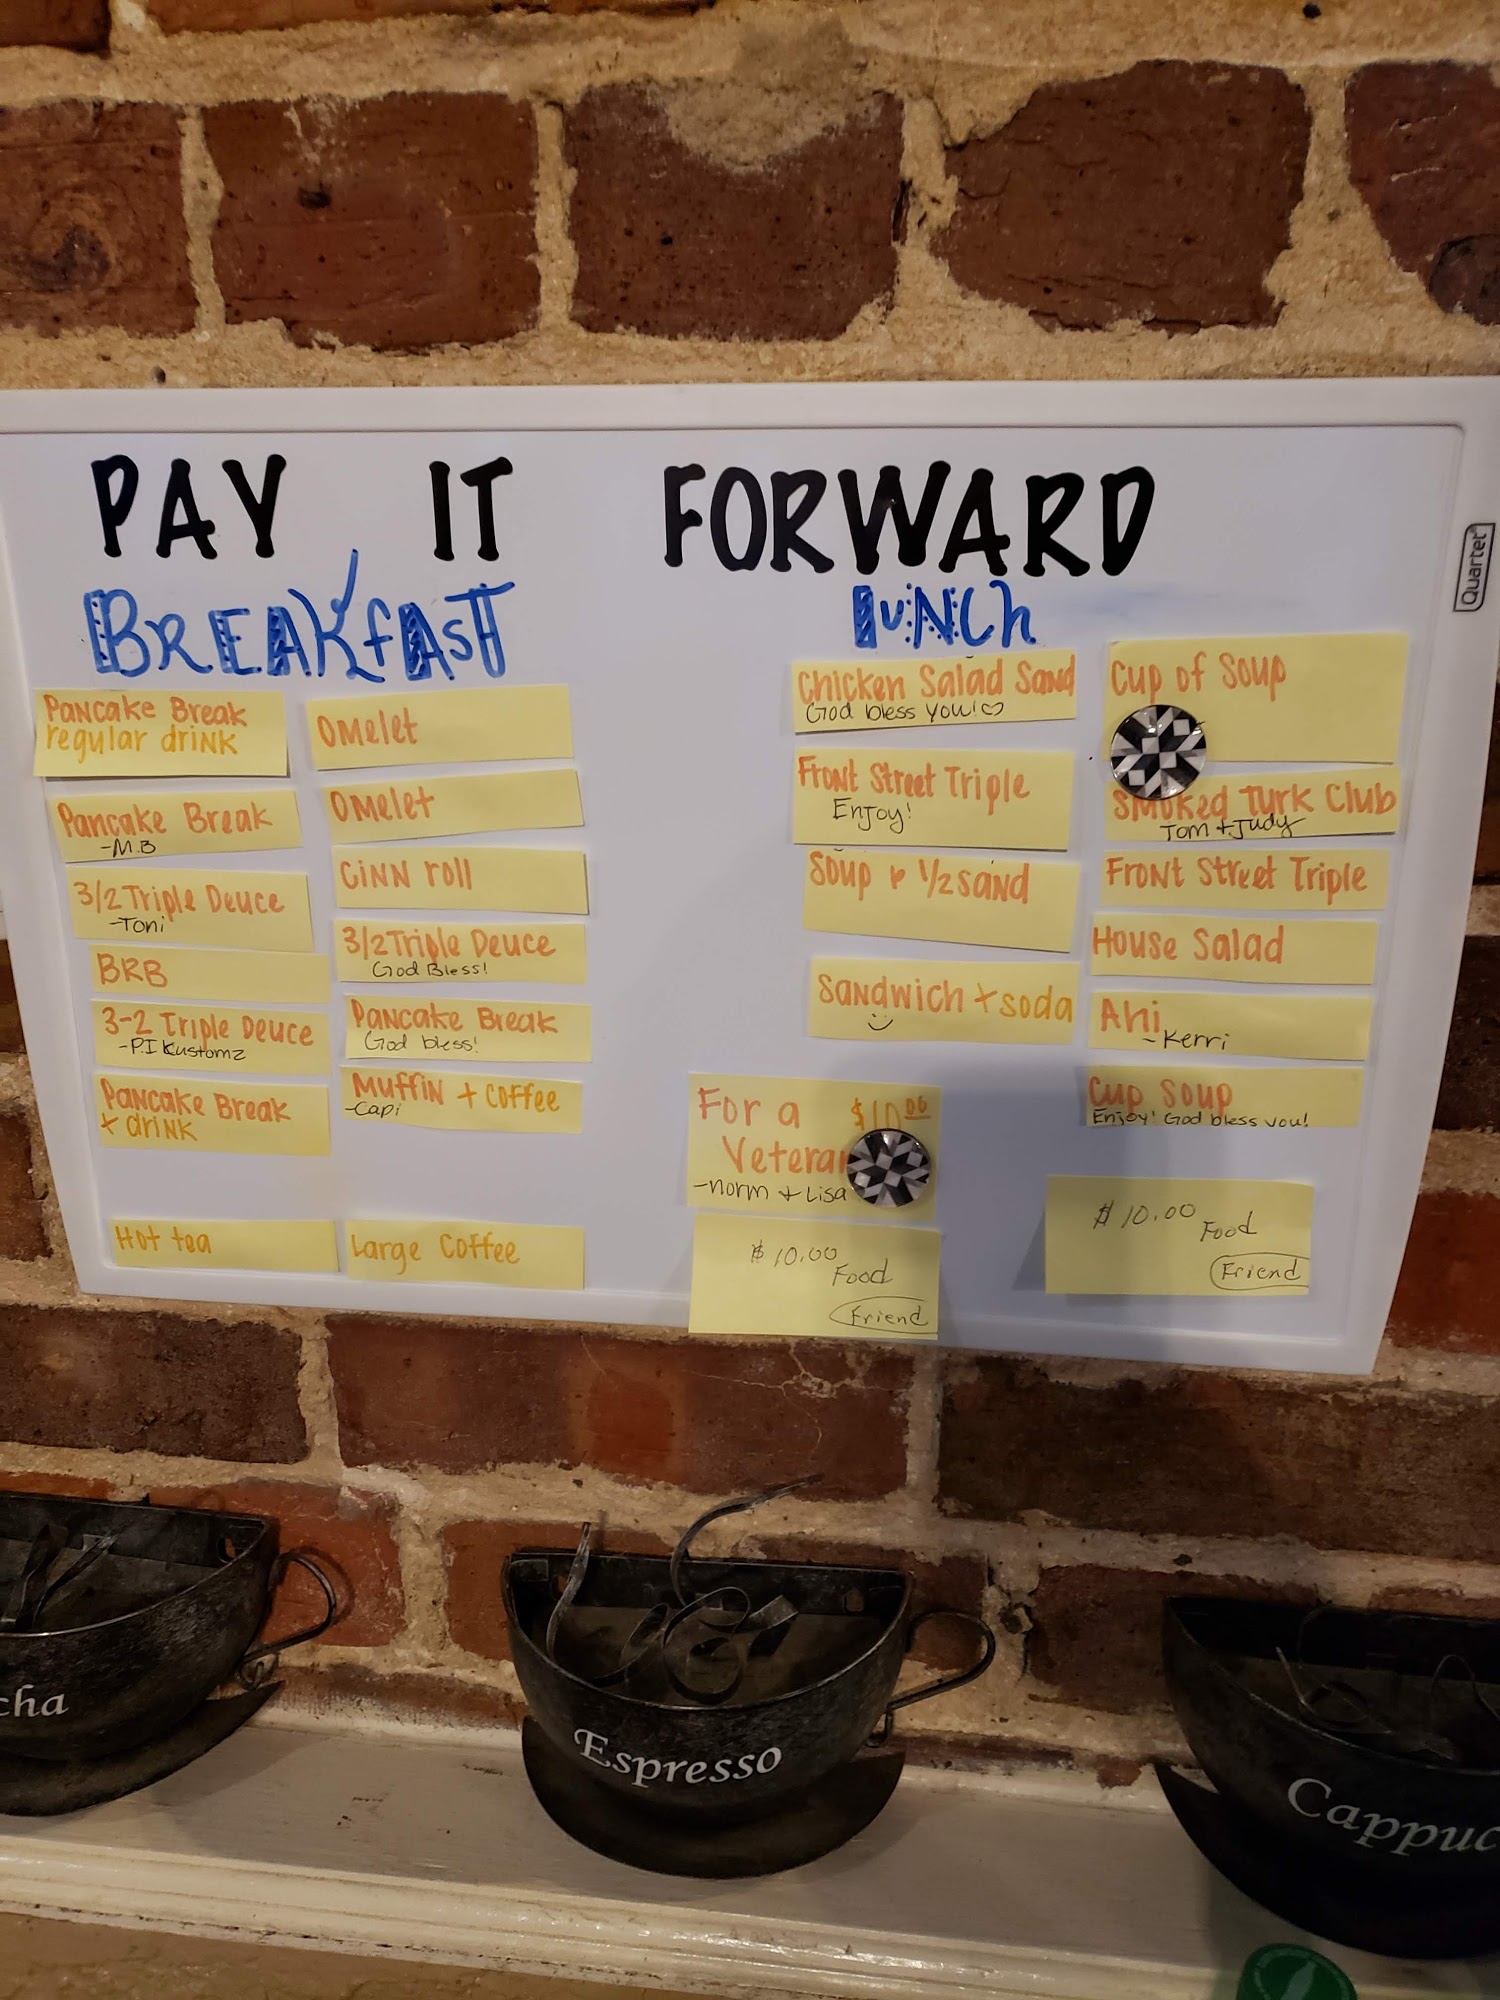 PAY IT FORWARD
Quartet
BREAKfAST
Pancake Break
regular drink
Pancake Break
-M.B
3/2 Triple Deuce
-Toni
BRB
3-2 Triple Deuce
-P.I Kustomz
Pancake Break
+ drink
Hot tea
Omelet
Omelet
Cinn roll
3/2 Triple Deuce
God Bless!
Pancake Break
God bless!
Muffin + Coffee
-Capi
Large Coffee
LuNCh
Chicken Salad Sand
God bless you!
Front Street Triple
Enjoy!
Soup & 1/2 sand
Sandwich + soda
For a $10.00
Veteran
-norm + Lisa
$10.00
Food
Friend
Cup of Soup
Smoked Turk Club
Tom + Judy
Front Street Triple
House Salad
Ahi
- Kerri
Cup Soup
Enjoy! God bless you!
$10.00
Food
Friend
cha
Espresso
Cappuc